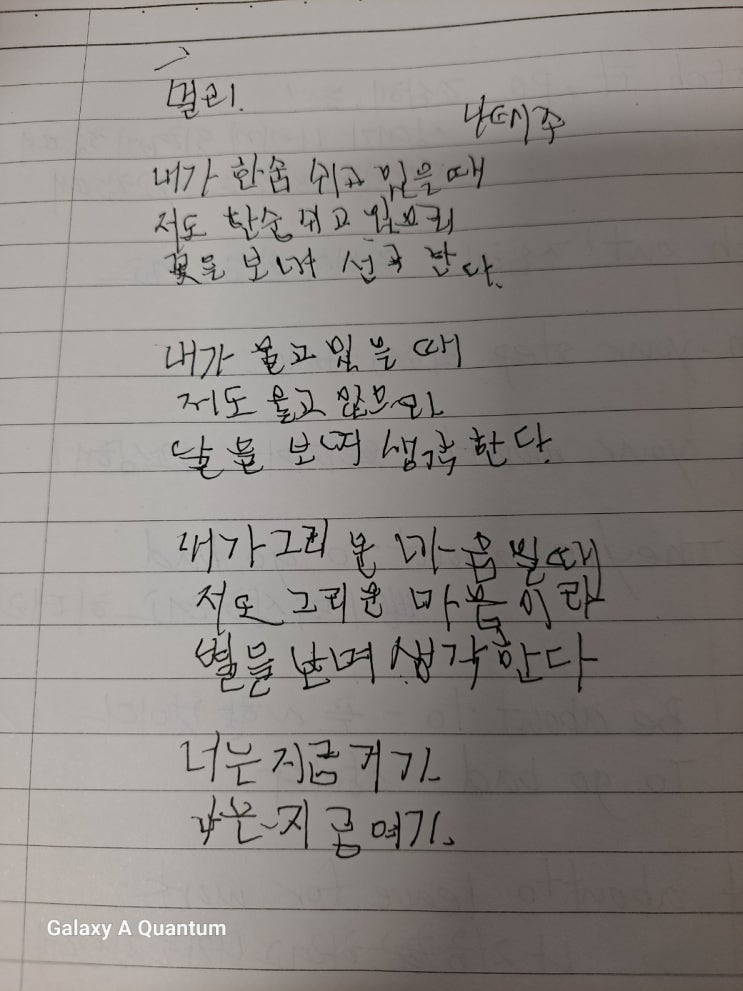 멀리.
나태주
내가 한숨 쉬고 있을 때
저도 한숨 쉬고 있으리
꽃을 보며 한다.
내가 울고 있을 때
저도 울고
달을 보며 생각 한다.
내가 그리운 마음 일 때
저도 그리운 마음이라
별을 보며 생각한다
너는 지금 거기
나는 지금 여기.
Galaxy A Quantum